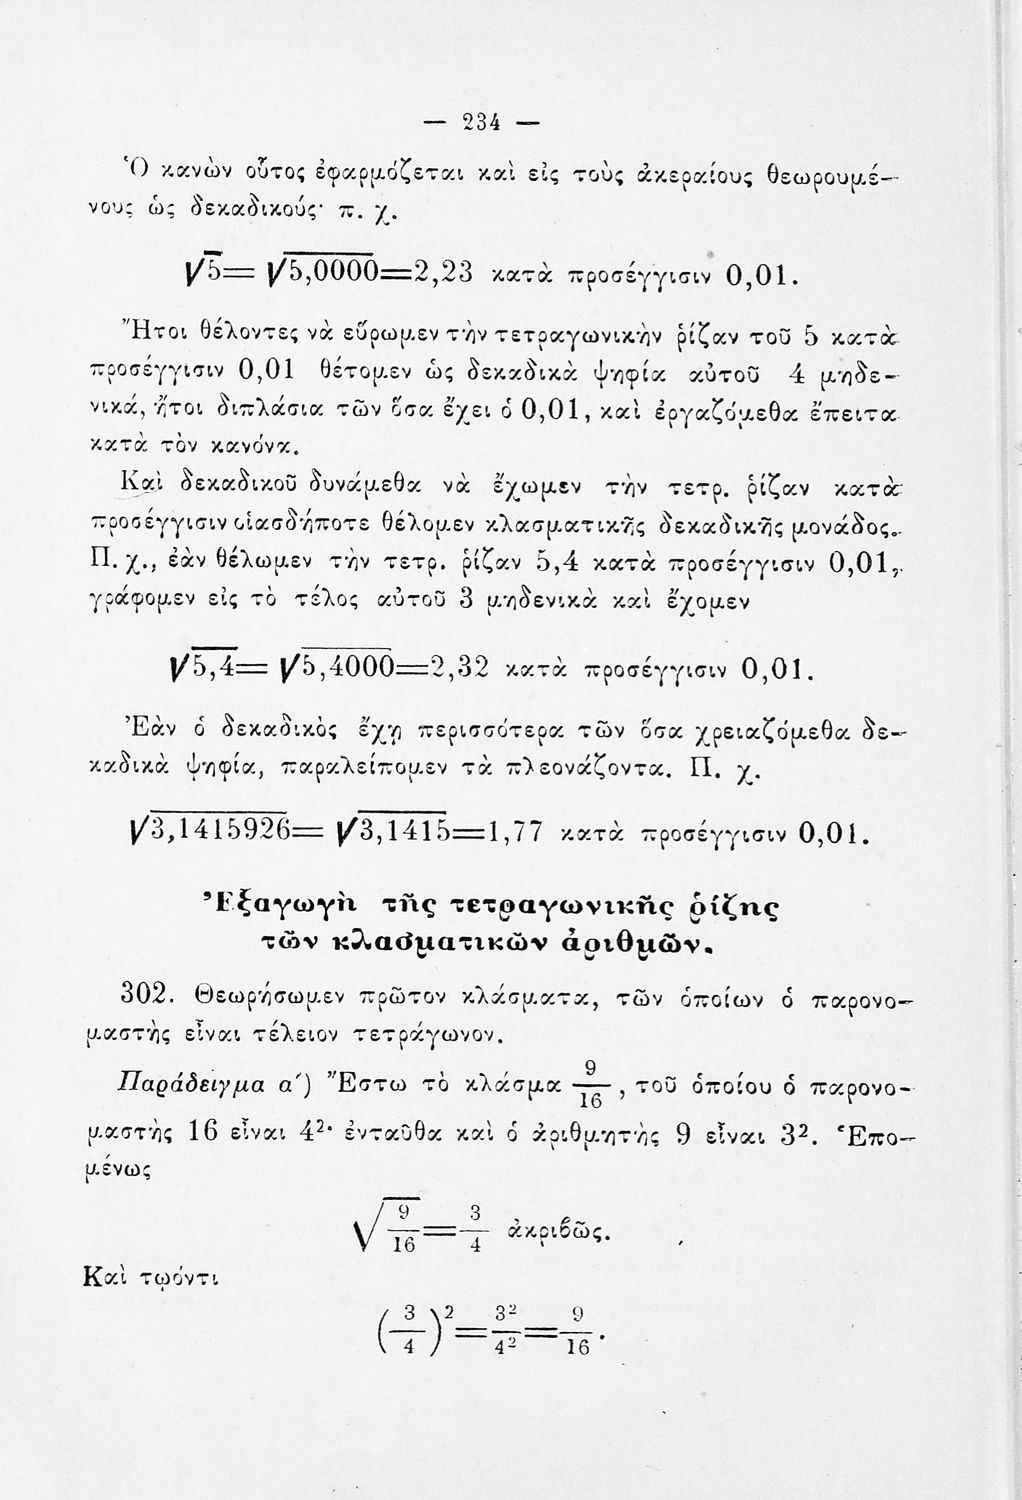 — 234 —
Ὁ κανὼν οὗτος ἐφαρμόζεται καὶ εἰς τοὺς ἀκεραίους θεωρουμέ-
νους ὡς δεκαδικούς· π. χ.
√5= √5,0000=2,23 κατὰ προσέγγισιν 0,01.
Ἤτοι θέλοντες νὰ εὕρωμεν τὴν τετραγωνικὴν ῥίζαν τοῦ 5 κατὰ
προσέγγισιν 0,01 θέτομεν ὡς δεκαδικὰ ψηφία αὐτοῦ 4 μηδε-
νικά, ἤτοι διπλάσια τῶν ὅσα ἔχει ὁ 0,01, καὶ ἐργαζόμεθα ἔπειτα
κατὰ τὸν κανόνα.
Καὶ δεκαδικοῦ δυνάμεθα νὰ ἔχωμεν τὴν τετρ. ῥίζαν κατὰ
προσέγγισιν οἱασδήποτε θέλομεν κλασματικῆς δεκαδικῆς μονάδος.
Π. χ., ἐὰν θέλωμεν τὴν τετρ. ῥίζαν 5,4 κατὰ προσέγγισιν 0,01,
γράφομεν εἰς τὸ τέλος αὐτοῦ 3 μηδενικὰ καὶ ἔχομεν
√5,4= √5,4000=2,32 κατὰ προσέγγισιν 0,01.
Ἐὰν ὁ δεκαδικὸς ἔχῃ περισσότερα τῶν ὅσα χρειαζόμεθα δε-
καδικὰ ψηφία, παραλείπομεν τὰ πλεονάζοντα. Π. χ.
√3,1415926= √3,1415=1,77 κατὰ προσέγγισιν 0,01.
Ἐξαγωγὴ τῆς τετραγωνικῆς ῥίζης
τῶν κλασματικῶν ἀριθμῶν.
302. Θεωρήσωμεν πρῶτον κλάσματα, τῶν ὁποίων ὁ παρονο-
μαστὴς εἶναι τέλειον τετράγωνον.
Παράδειγμα α΄) Ἔστω τὸ κλάσμα 9/16, τοῦ ὁποίου ὁ παρονο-
μαστὴς 16 εἶναι 4²· ἐνταῦθα καὶ ὁ ἀριθμητὴς 9 εἶναι 3². Ἑπο-
μένως
√9/16=3/4 ἀκριβῶς.
Καὶ τῳόντι
(3/4)²=3²/4²=9/16.